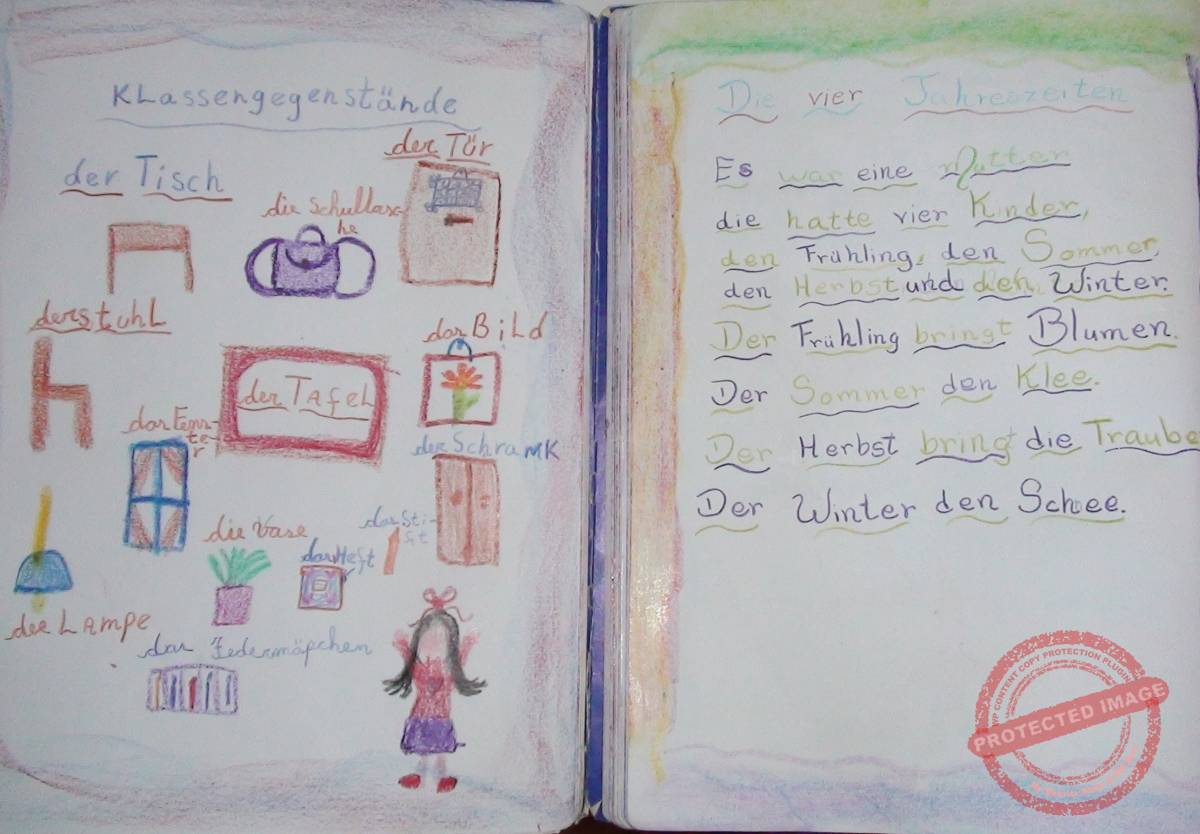 Klassengegenstände
der Tür
der Tisch
die Schultasche
der Stuhl
das Bild
der Tafel
das Fenster
der Schrank
die Vase
das Heft
das Stift
die Lampe
das Federmäpchen
Die vier Jahreszeiten
Es war eine Mutter
die hatte vier Kinder,
den Frühling, den Sommer,
den Herbst und den Winter.
Der Frühling bringt Blumen.
Der Sommer den Klee.
Der Herbst bringt die Traube
Der Winter den Schee.
WP CONTENT COPY PROTECTION PLUGIN
PROTECTED IMAGE